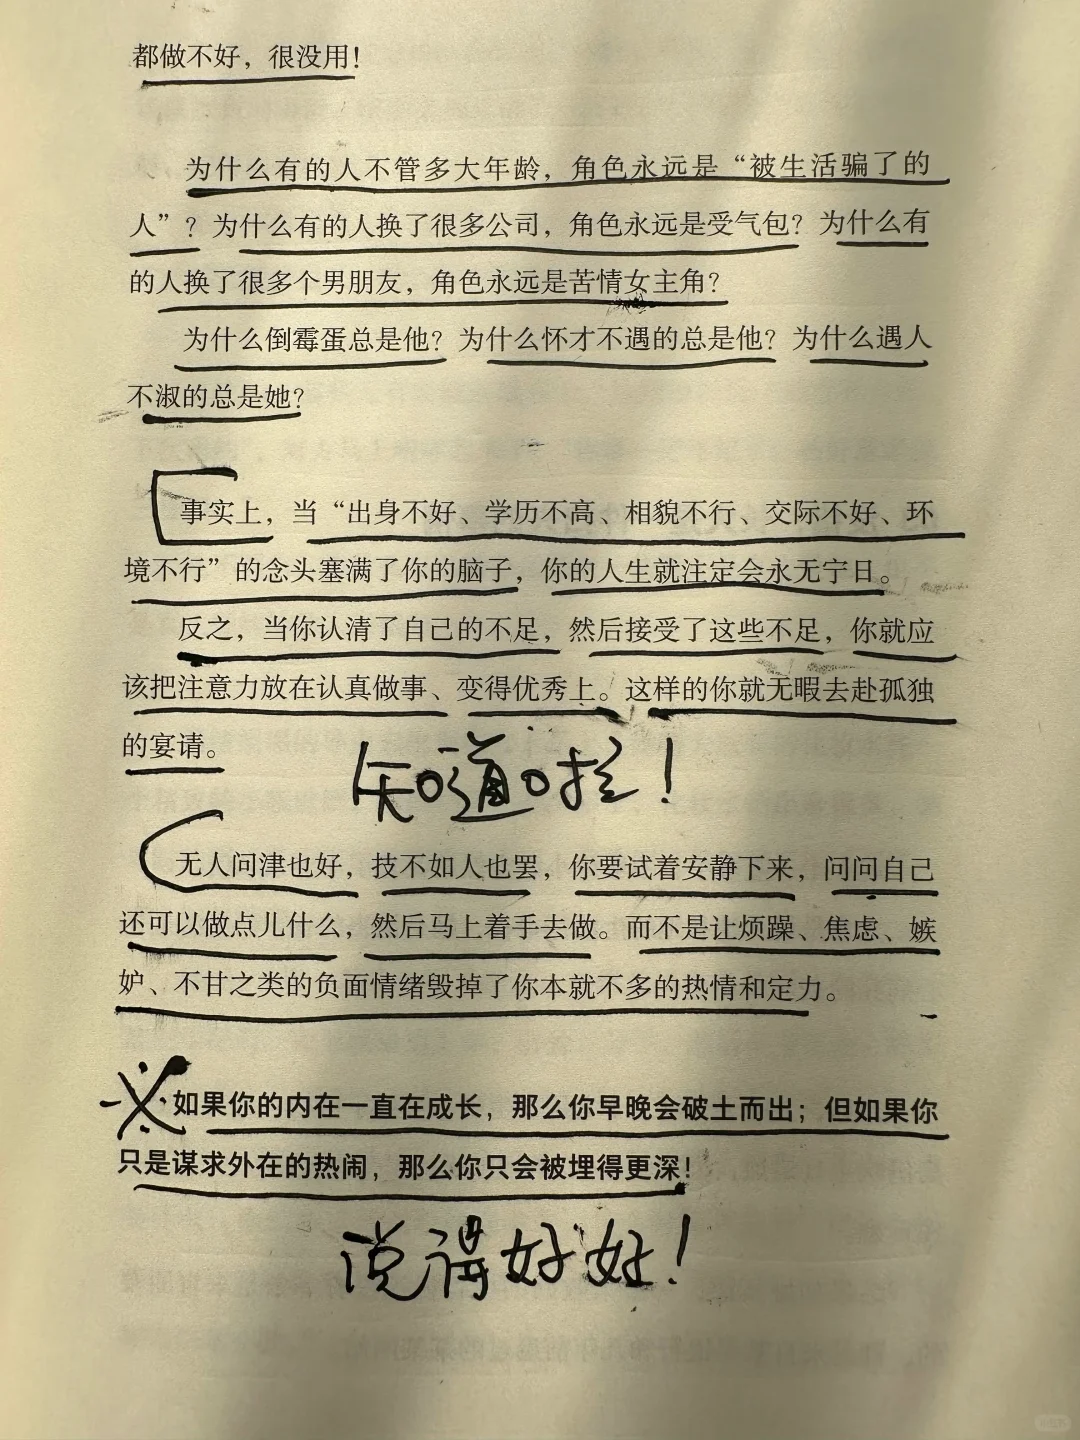 都做不好，很没用！
为什么有的人不管多大年龄，角色永远是“被生活骗了的
人”？为什么有的人换了很多公司，角色永远是受气包？为什么有
的人换了很多个男朋友，角色永远是苦情女主角？
为什么倒霉蛋总是他？为什么怀才不遇的总是他？为什么遇人
不淑的总是她？
事实上，当“出身不好、学历不高、相貌不行、交际不好、环
境不行”的念头塞满了你的脑子，你的人生就注定会永无宁日。
反之，当你认清了自己的不足，然后接受了这些不足，你就应
该把注意力放在认真做事、变得优秀上。这样的你就无暇去赴孤独
的宴请。
知道啦！
无人问津也好，技不如人也罢，你要试着安静下来，问问自己
还可以做点儿什么，然后马上着手去做。而不是让烦躁、焦虑、嫉
妒、不甘之类的负面情绪毁掉了你本就不多的热情和定力。
如果你的内在一直在成长，那么你早晚会破土而出；但如果你
只是谋求外在的热闹，那么你只会被埋得更深！
说得好好！